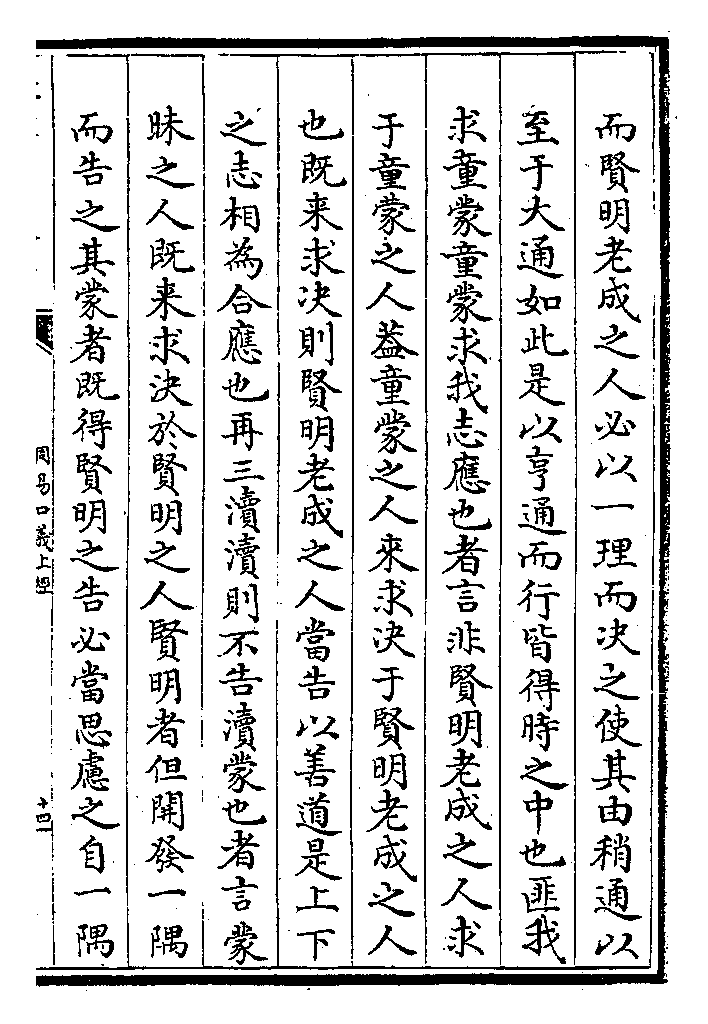 而賢明老成之人必以一理而决之使其由稍通以
至于大通如此是以亨通而行皆得時之中也匪我
求童蒙童蒙求我志應也者言非賢明老成之人求
于童蒙之人葢童蒙之人來求决于賢明老成之人
也既来求决則賢明老成之人當告以善道是上下
之志相為合應也再三瀆瀆則不告瀆蒙也者言蒙
昧之人既来求決於賢明之人賢明者但開發一隅
而告之其蒙者既得賢明之告必當思慮之自一隅
周易口義上經
十四